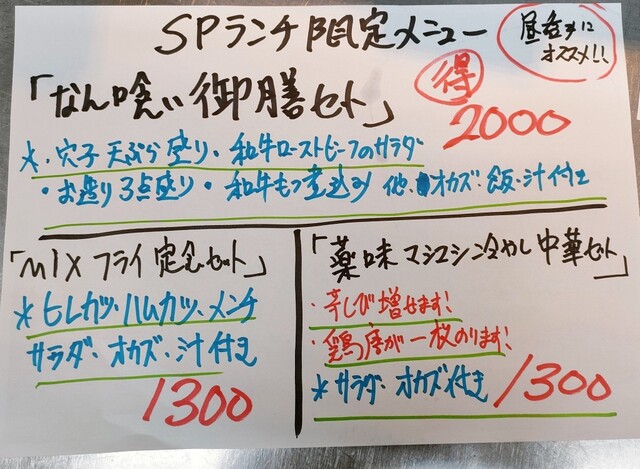 SPランチ限定メニュー
昼呑みに
オススメ!!
「なん喰い御膳セット」
得
2000
*・穴子天ぷら盛り・和牛ローストビーフのサラダ
・お造り3点盛り・和牛もつ煮込み 他、オカズ・飯・汁付き
「MIXフライ定食セット」
*ヒレカツ・ハムカツ・メンチ
サラダ・オカズ・汁付き
1300
「薬味マシマシ冷やし中華セット」
・辛しび増せます!
・鶏唐が一枚のります!
*サラダ・オカズ付き
1300